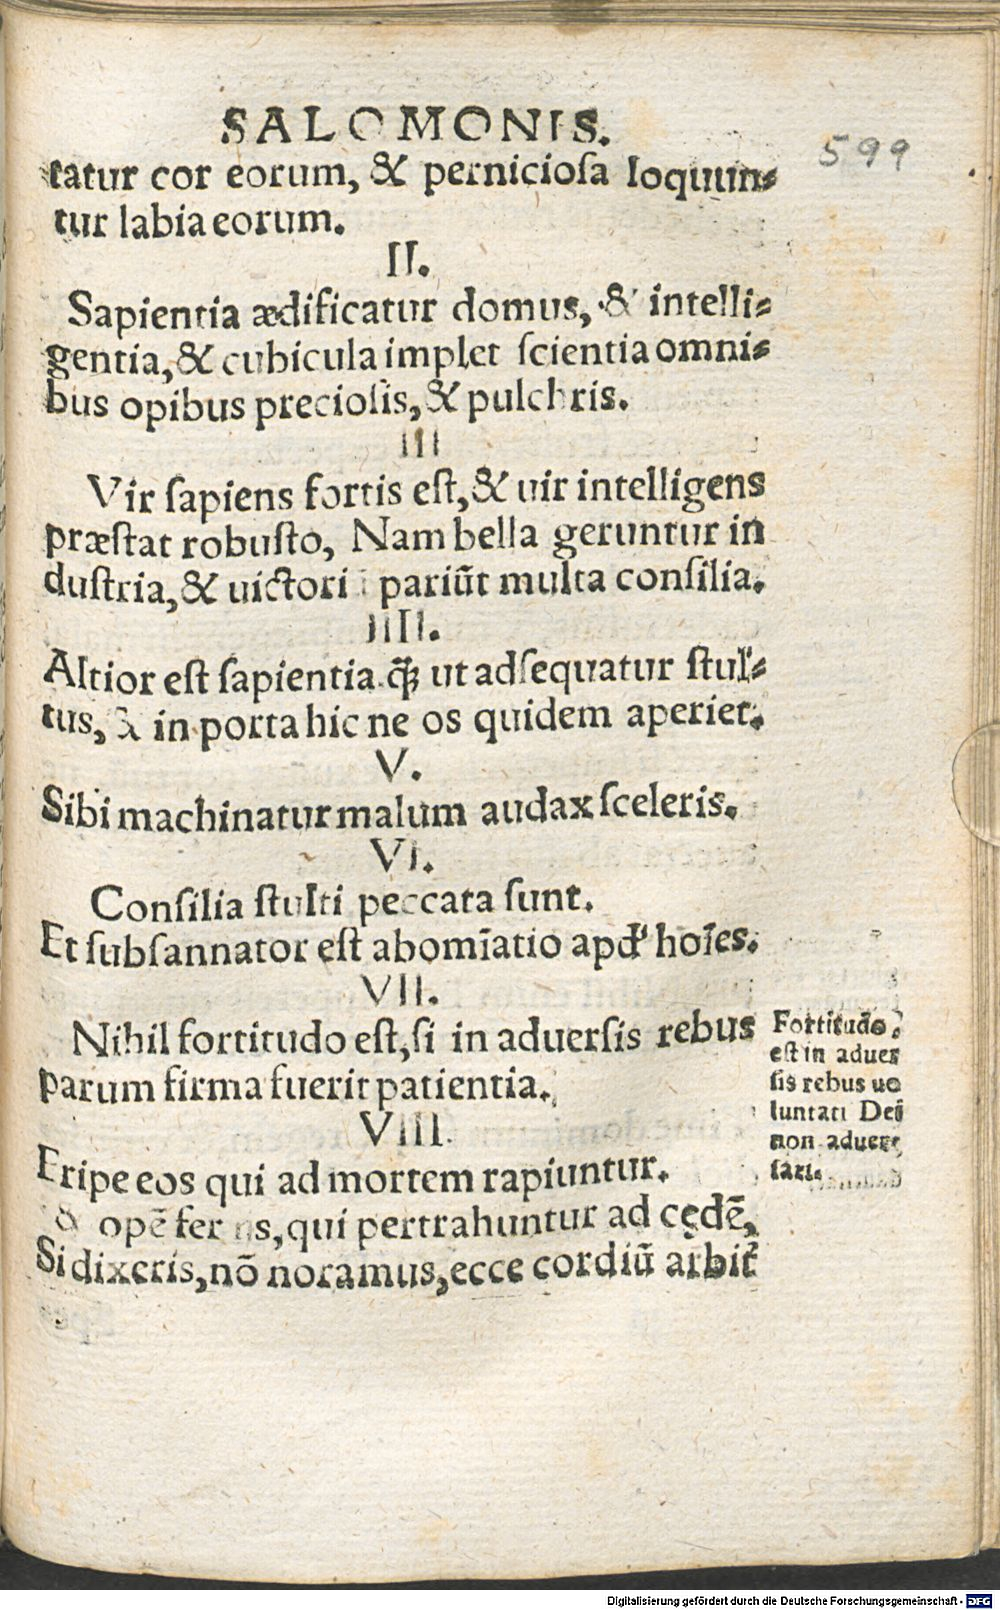 SALOMONIS.
599
tatur cor eorum, & perniciosa loquun-
tur labia eorum.
II.
Sapientia ædificatur domus, & intelli-
gentia, & cubicula implet scientia omni-
bus opibus preciosis, & pulchris.
III
Vir sapiens fortis est, & uir intelligens
præstat robusto, Nam bella geruntur in
dustria, & uictori pariūt multa consilia.
IIII.
Altior est sapientia ꝙ̄ ut adsequatur stul-
tus, & in porta hic ne os quidem aperiet.
V.
Sibi machinatur malum audax sceleris.
VI.
Consilia stulti peccata sunt.
Et subsannator est abomīatio apd' hoīes.
VII.
Nihil fortitudo est, si in aduersis rebus
parum firma fuerit patientia.
VIII.
Eripe eos qui ad mortem rapiuntur.
& opē fer his, qui pertrahuntur ad cędē,
Si dixeris, nō noramus, ecce cordiū arbit̄
Fortitudo
est in aduer
sis rebus uo
luntati Dei
non aduer
sari.
Digitalisierung gefördert durch die Deutsche Forschungsgemeinschaft - DFG